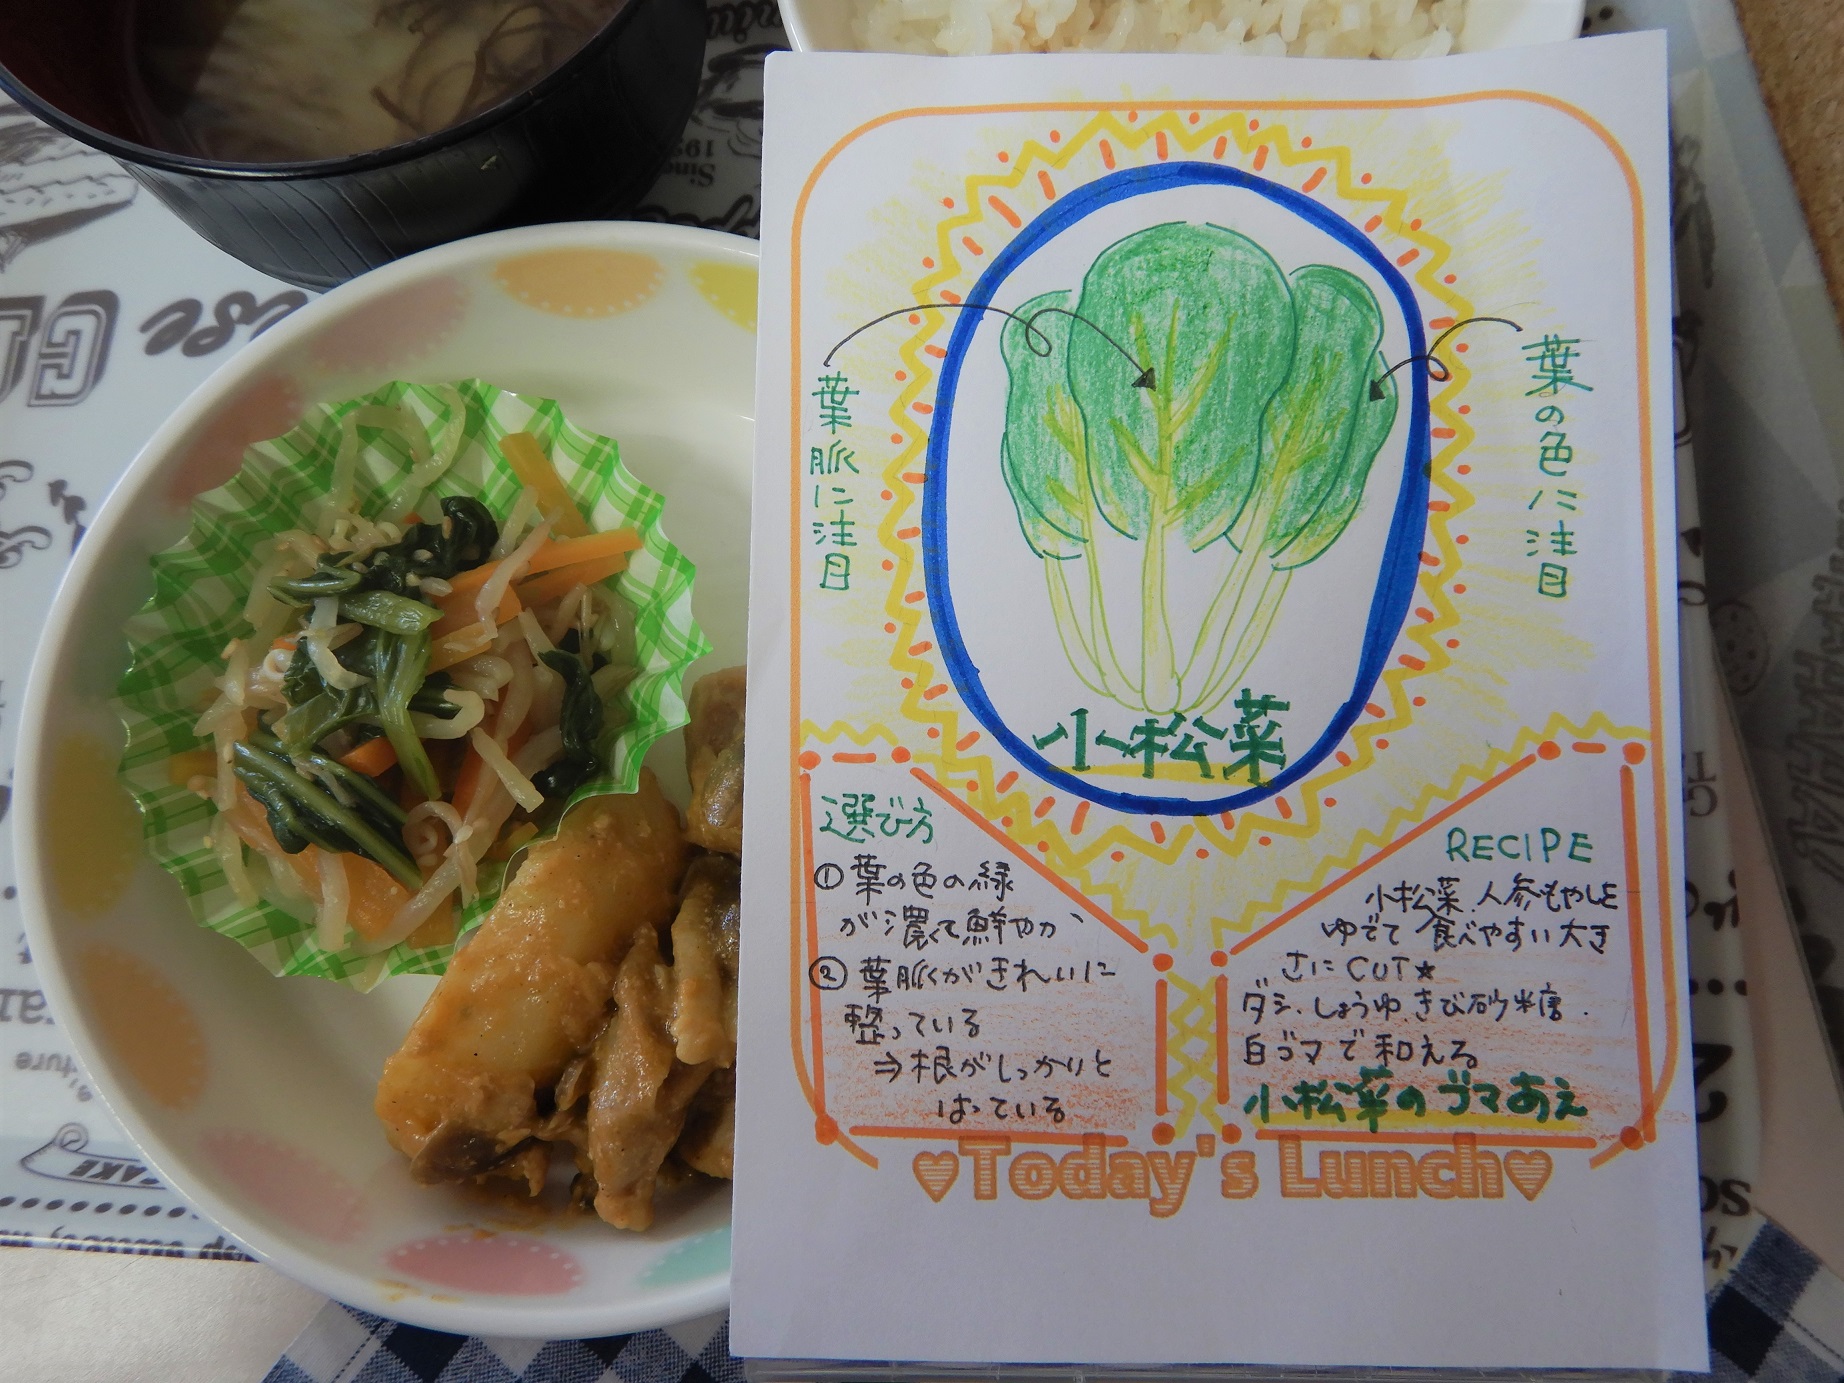 葉脈に注目
葉の色に注目
小松菜
選び方
① 葉の色の緑
が濃くて鮮やか
② 葉脈がきれいに
整っている
⇒根がしっかりと
はっている
RECIPE
小松菜、人参もやしを
ゆでて 食べやすい大き
さにCUT★
ダシ、しょうゆ、きび砂糖、
白ゴマで和える
小松菜のゴマあえ
♥Today's Lunch♥
CAKE